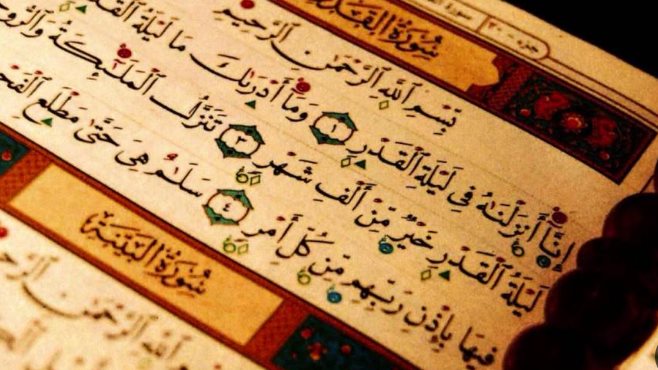 سورة القدر
جزء ٣٠
بِسْمِ ٱللَّهِ ٱلرَّحْمَٰنِ ٱلرَّحِيمِ
إِنَّآ أَنزَلْنَٰهُ فِى لَيْلَةِ ٱلْقَدْرِ ١ وَمَآ أَدْرَىٰكَ مَا لَيْلَةُ ٱلْقَدْرِ
لَيْلَةُ ٱلْقَدْرِ خَيْرٌ مِّنْ أَلْفِ شَهْرٍ ٣ تَنَزَّلُ ٱلْمَلَٰٓئِكَةُ وَٱلرُّوحُ
فِيهَا بِإِذْنِ رَبِّهِم مِّن كُلِّ أَمْرٍ ٤ سَلَٰمٌ هِىَ حَتَّىٰ مَطْلَعِ
سُورَةُ البَيِّنَةِ
ٱللَّهِ ٱلرَّحْمَٰنِ